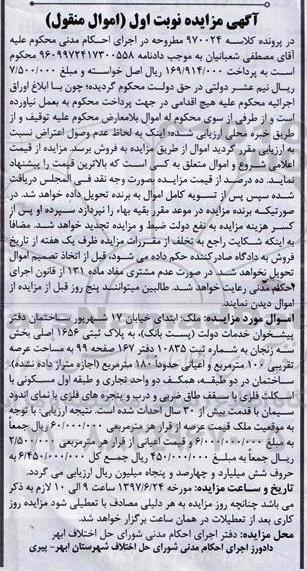 آگهی مزایده نوبت اول (اموال منقول)
در پرونده کلاسه ۹۷۰۰۲۴ مطروحه در اجرای احکام مدنی محکوم علیه
آقای مصطفی شعبانیان به موجب دادنامه ۹۶۰۹۹۷۲۴۱۷۳۰۰۵۵۸ محکوم
است به پرداخت ۱۶۹/۹۱۴/۰۰۰ ریال اصل خواسته و مبلغ ۷/۵۰۰/۰۰۰
ریال نیم عشر دولتی در حق دولت محکوم گردیده؛ چون با ابلاغ اوراق
اجرائیه محکوم علیه هیچ اقدامی در جهت پرداخت محکوم به بعمل نیاورده
است و از طرفی از سوی محکوم له اموال بلامعارض محکوم علیه توقیف و از
طریق خبره محلی ارزیابی شده؛ اینک به لحاظ عدم وصول اعتراض نسبت
به ارزیابی مقرر گردید اموال از طریق مزایده به فروش برسد. مزایده از قیمت
اعلامی شروع و اموال متعلق به کسی است که بالاترین قیمت را پیشنهاد
نماید. ده درصد از قیمت مزایده بصورت وجه نقد فی المجلس دریافت
شده سپس پس از تسویه کامل اموال به برنده تحویل داده خواهد شد. در
صورتیکه برنده مزایده در موعد مقرر بقیه بهاء را نپردازد سپرده او پس از
کسر هزینه مزایده به نفع دولت ضبط و مزایده تجدید خواهد شد. مضافاً
به اینکه شکایت راجع به تخلف از مقررات مزایده ظرف یک هفته از تاریخ
فروش به دادگاه صادرکننده حکم داده می شود، قبل از اتخاذ تصمیم اموال
تحویل نخواهد شد. در صورت عدم مشتری مفاد ماده ۱۳۱ از قانون اجرای
احکام مدنی رعایت خواهد شد. طالبین میتوانند پنج روز قبل از مزایده از
اموال دیدن نمایند.
اموال مورد مزایده: ملک: ابتدای خیابان ۱۷ شهریور ساختمان دفتر
پیشخوان خدمات دولت (پست بانک)، به پلاک ثبتی ۱۶۵۶ اصلی بخش
سه زنجان به شماره ثبت ۱۰۸۳۵ دفتر ۱۶۷ صفحه ۹۹ به مساحت عرصه
تقریبی ۱۰۰ مترمربع و اعیانی حدوداً ۱۸۰ مترمربع (اجازه متراژ داده نشده)،
ساختمان در دو طبقه، همکف دو واحد تجاری و طبقه اول مسکونی با
اسکلت فلزی با سقف طاق ضربی و درب و پنجره های فلزی با نمای اندود
سیمان با قدمت بیش از ۳۰ سال احداث شده است. نتیجه ارزیابی: با توجه
به موقعیت ملک قیمت عرصه از قرار هر مترمربعی ۶۰/۰۰۰/۰۰۰ ریال
جمعاً به مبلغ ۶/۰۰۰/۰۰۰/۰۰۰ و قیمت اعیانی از قرار هر مترمربعی ۲/۵۰۰/۰۰۰
ریال جمعاً به مبلغ ۴۵۰/۰۰۰/۰۰۰ ریال جمع کل ۶/۴۵۰/۰۰۰/۰۰۰ به
حروف شش میلیارد و چهارصد و پنجاه میلیون ریال ارزیابی می گردد.
تاریخ و ساعت مزایده: مورخه ۱۳۹۷/۶/۲۴ ساعت ۹ الی ۱۰ لازم به ذکر
می باشد چنانچه روز مزایده به هر دلیلی مصادف با تعطیلی شود مزایده روز
کاری بعد از تعطیلات در همان ساعت برگزار خواهد شد.
محل مزایده: دفتر اجرای احکام مدنی شورای حل اختلاف ابهر
دادورز اجرای احکام مدنی شورای حل اختلاف شهرستان ابهر- پیری